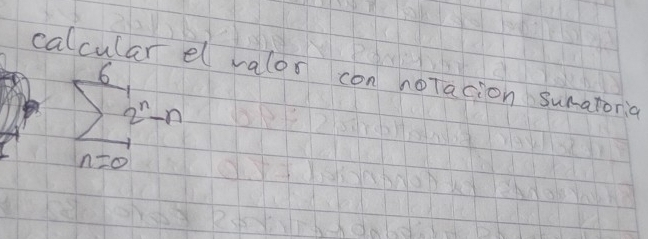 calcular el valor con notacion sumatoria
6
∑ 2ⁿ-n
n=0